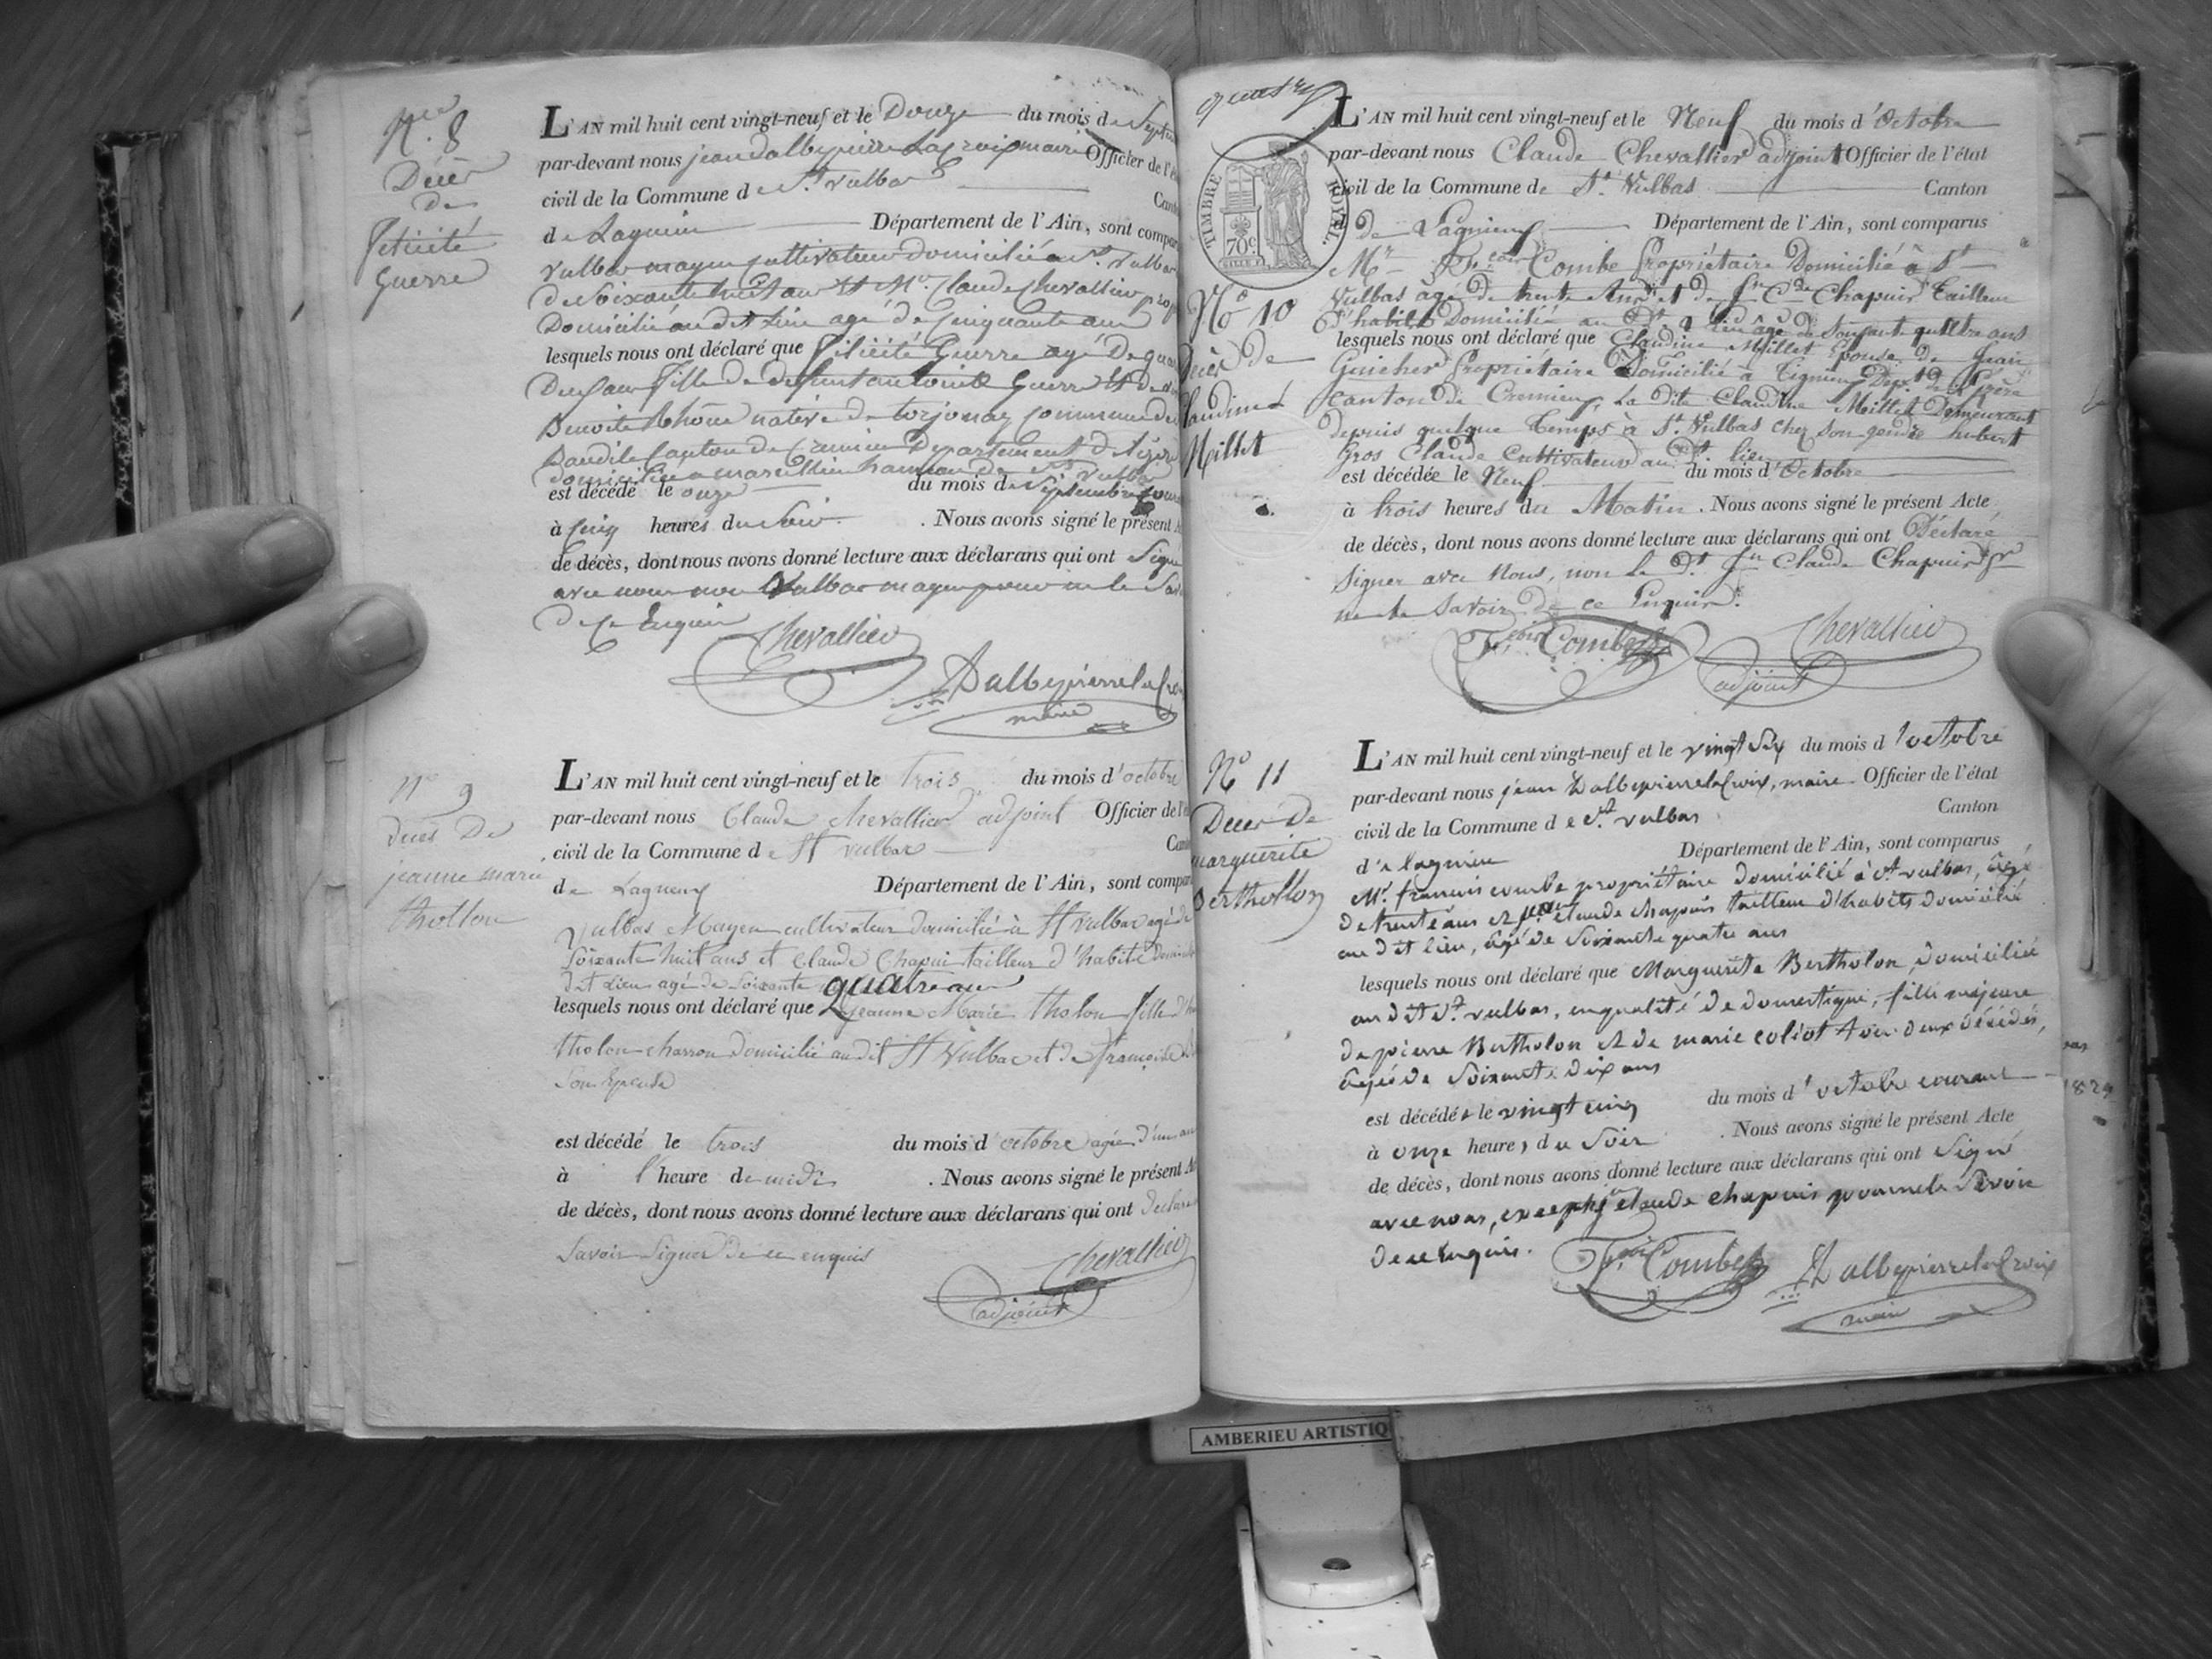 N.º 8
Décès
De
Félicité
Guerre
L'AN mil huit cent vingt-neuf et le Douze du mois de Septem
par-devant nous jean dalbepierre Lacroix maire Officier de l'é
civil de la Commune de St. Vulbas Cant
de Lagnieu Département de l'Ain, sont compar
Vulbas mayen cultivateur domicilié a St. Vulbas
de Soixante huit ans et Mr. Claude Chevallier prop
Domicilié au dit Lieu agé de Cinquante ans
lesquels nous ont déclaré que Félicité Guerre agé De
Deux ans fille de defunt antoine Guerre et de
Benoite Rhône native de torjonas commune de
Baudile Canton de Crémieu Departement d'Isère
domiciliée a marcillieu hameau de St. Vulbas
est décédé le onze du mois de Septembre cour
à Cinq heures du Soir. Nous avons signé le présent A
de décès, dont nous avons donné lecture aux déclarans qui ont Signé
avec nous non Vulbas mayen pour ne le Sav
De ce Enquis
Chevallier
Dalbepierrelacroi
maire
n° 9
décés De
jeanne marie
thollon
L'AN mil huit cent vingt-neuf et le trois du mois d'octobre
par-devant nous Claude chevallier adjoint Officier de l'é
civil de la Commune de St Vulbas Can
de Lagneux Département de l'Ain, sont compar
Vulbas Mayen cultivateur Domicilié à St Vulbas agé de
Soixante huit ans et Claude Chapui tailleur d'habits Domicilié
dit Lieu agé de Soixante quatre ans
lesquels nous ont déclaré que jeanne Marie tholon fille d
tholon charron domicilié au dit St Vulbas et de françoise
Son Epouse
est décédé le trois du mois d'octobre agée d'un an
à l'heure de midi. Nous avons signé le présent A
de décès, dont nous avons donné lecture aux déclarans qui ont Declaré
Savoir Signer de ce enquis
Chevallier
adjoint
TIMBRE ROYAL.
70c
N.º 10
Décès de
Claudine
Millet
L'AN mil huit cent vingt-neuf et le Neuf du mois d'Octobre
par-devant nous Claude Chevallier adjoint Officier de l'état
civil de la Commune de St. Vulbas Canton
de Lagnieu Département de l'Ain, sont comparus
Mr. Fcois Combe Propriétaire Domicilié à St
Vulbas âgé de trente Ans et de Jn Cde Chapuis Tailleur
d'habits Domicilié au Dt. lieu âgé de Soixante quattre ans
lesquels nous ont déclaré que Claudine Millet Epouse de
Guicher Propriétaire Domicilié à Tignieu Dept. de l'Izère
Canton de Cremieu, La dite Claudine Millet Demeurant
depuis quelque Temps à St. Vulbas chez Son gendre hubert
Gros Claude Cultivateur au Dt. lieu
est décédée le Neuf du mois d'Octobre
à trois heures du Matin. Nous avons signé le présent Acte
de décès, dont nous avons donné lecture aux déclarans qui ont Déclaré
Signer avec Nous, non Le Dt. Jn Claude Chapuis pr
ne le Savoir de ce Enquis.
Fcois Combe
Chevallier
adjoint
N° 11
Décès de
marguerite
Berthollon
L'AN mil huit cent vingt-neuf et le vingt Six du mois d'octobre
par-devant nous jean Dalbepierrelacroix, maire Officier de l'état
civil de la Commune de St. vulbas Canton
de lagnieu Département de l'Ain, sont comparus
Mr. francois combe propriétaire domicilié à St. vulbas, âgé
de trente ans et jean claude chapuis tailleur d'habits domicilié
au dit lieu, âgé de Soixante quatre ans
lesquels nous ont déclaré que Marguerite Bertholon, domiciliée
au dit St. vulbas, en qualité de domestique, fille majeure
de pierre Bertholon et de marie coliot tous deux décédés,
âgée de Soixante dix ans
est décédée le vingt cinq du mois d'octobre courant
à onze heures du Soir. Nous avons signé le présent Acte
de décès, dont nous avons donné lecture aux déclarans qui ont Signé
avec nous, excepté jn claude chapuis pour ne le Savoir
de ce Enquis.
Fcois Combe
Dalbepierrelacroix
maire
1829
AMBERIEU ARTISTIQ